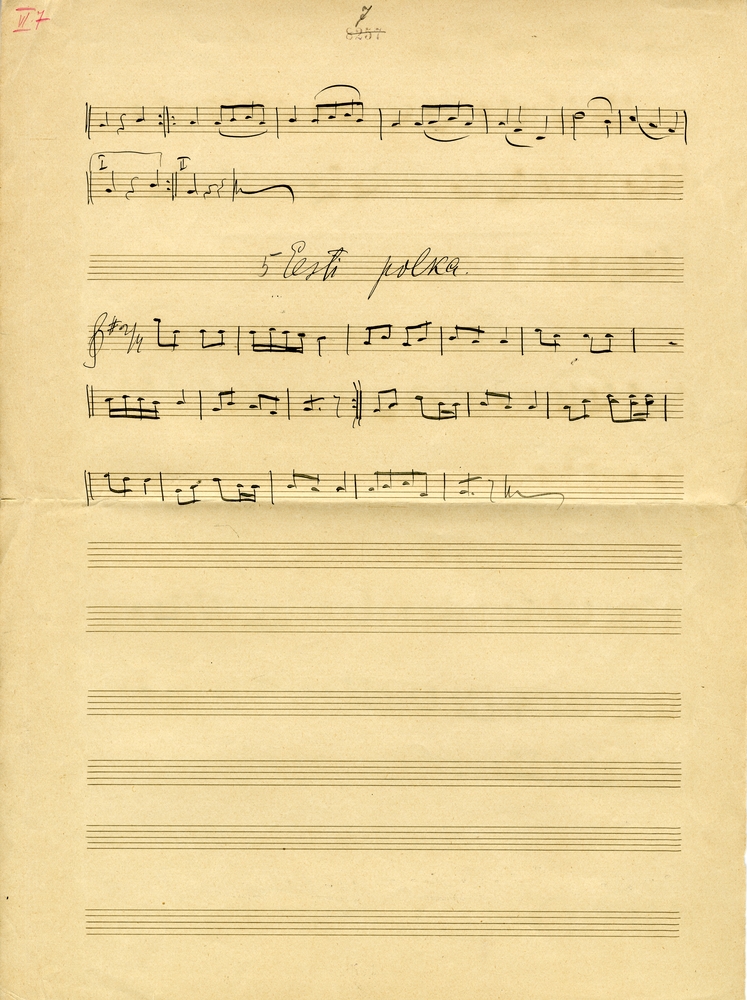 VI.7
7
8237
I II
5 Eesti polka.
2/4